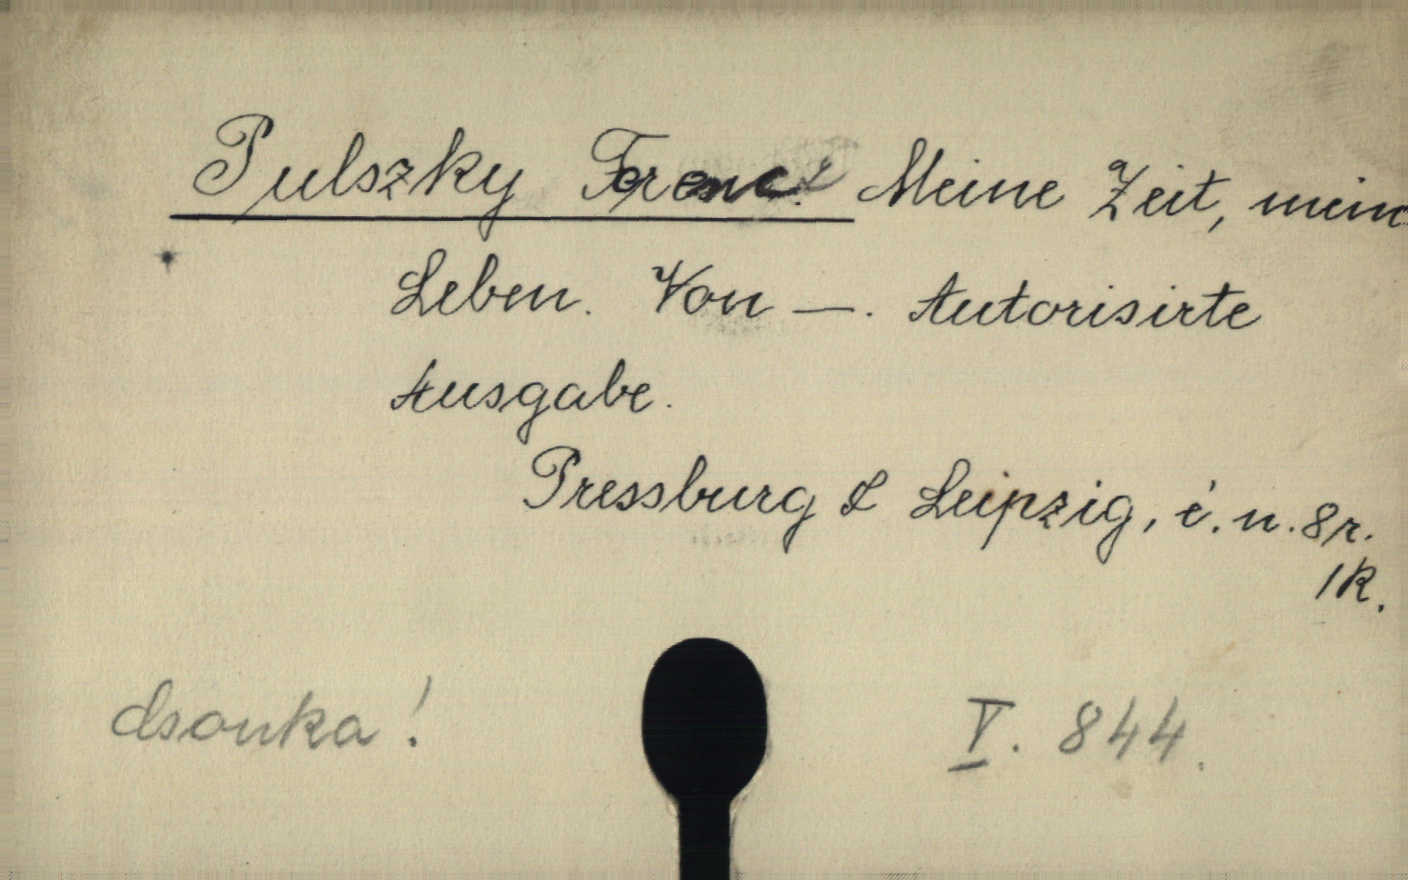 Pulszky Ferenc. Meine Zeit, mein
Leben. Von —. Autorisirte
Ausgabe.
Pressburg & Leipzig, é. n. 8r.
1K.
csonka!
V. 844.